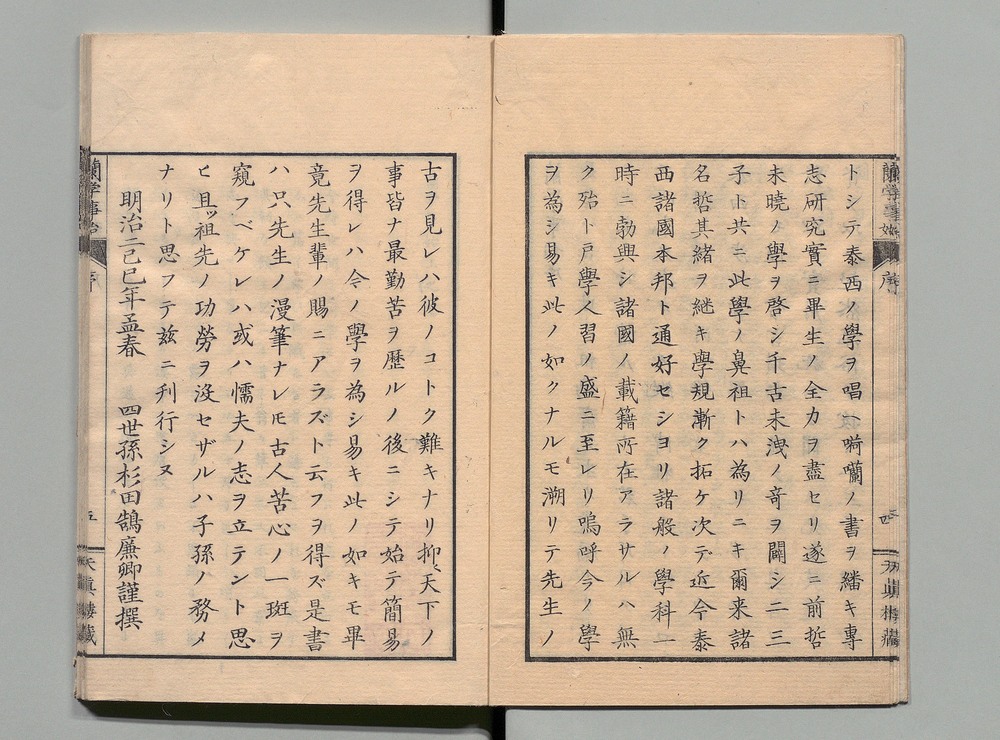 蘭学事始
序
四
天真楼蔵
トシテ泰西ノ學ヲ唱へ喎蘭ノ書ヲ繙キ專
志研究實ニ畢生ノ全力ヲ盡セリ遂ニ前哲
未曉ノ學ヲ啓シ千古未洩ノ竒ヲ闢シ二三
子ト共ニ此學ノ鼻祖トハ為リニキ爾来諸
名哲其緒ヲ継キ學規漸ク拓ケ次デ近今泰
西諸國本邦ト通好セシヨリ諸般ノ學科一
時ニ勃興シ諸國ノ載籍所在アラサルハ無
ク殆ト戸學人習ノ盛ニ至レリ嗚呼今ノ學
ヲ為シ易キ此ノ如クナルモ溯リテ先生ノ
古ヲ見レハ彼ノコトク難キナリ抑〻天下ノ
事皆ナ最勤苦ヲ歷ルノ後ニシテ始テ簡易
ヲ得レハ今ノ學ヲ為シ易キ此ノ如キモ畢
竟先生輩ノ賜ニアラズト云フヲ得ズ是書
ハ只先生ノ漫筆ナレ𪜈古人苦心ノ一斑ヲ
窺フベケレハ或ハ懦夫ノ志ヲ立テント思
ヒ且ッ祖先ノ功勞ヲ没セザルハ子孫ノ務メ
ナリト思フテ茲ニ刊行シヌ
明治二己巳年孟春 四世孫杉田鶴廉卿謹撰
蘭学事始
序
五
天真楼蔵